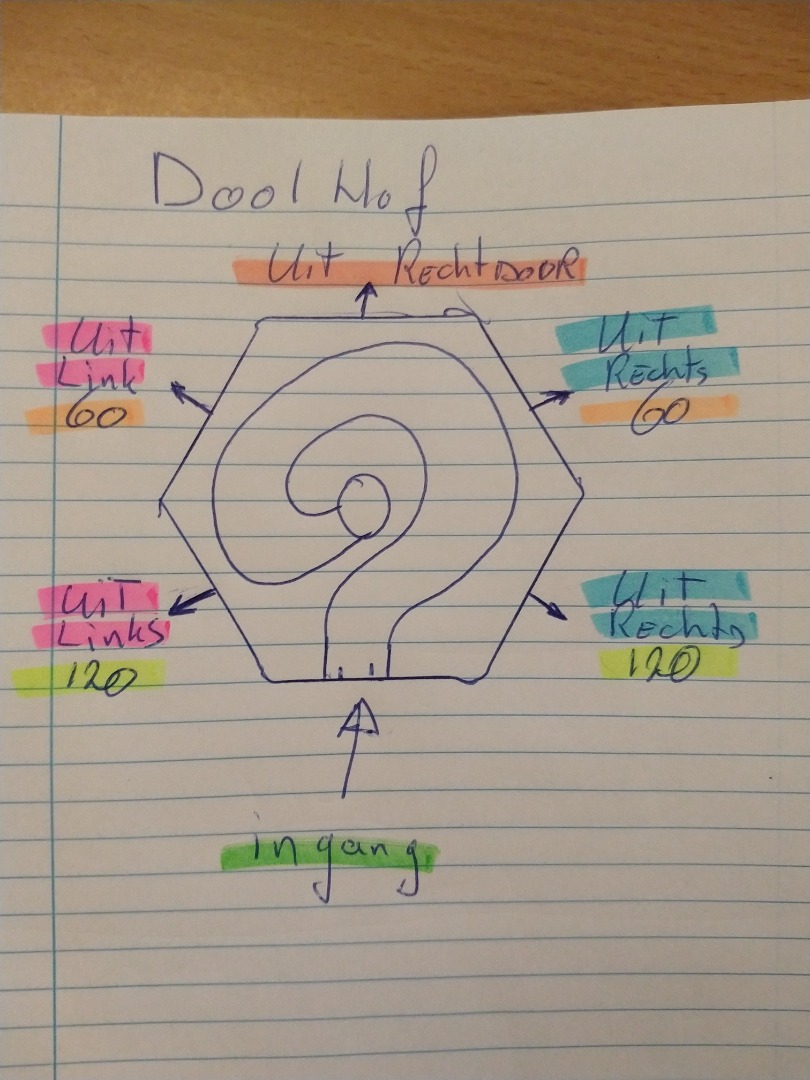 Dool Hof
Uit RechtDOOR
Uit
Link
60
Uit
Rechts
60
Uit
Links
120
Uit
Rechts
120
ingang